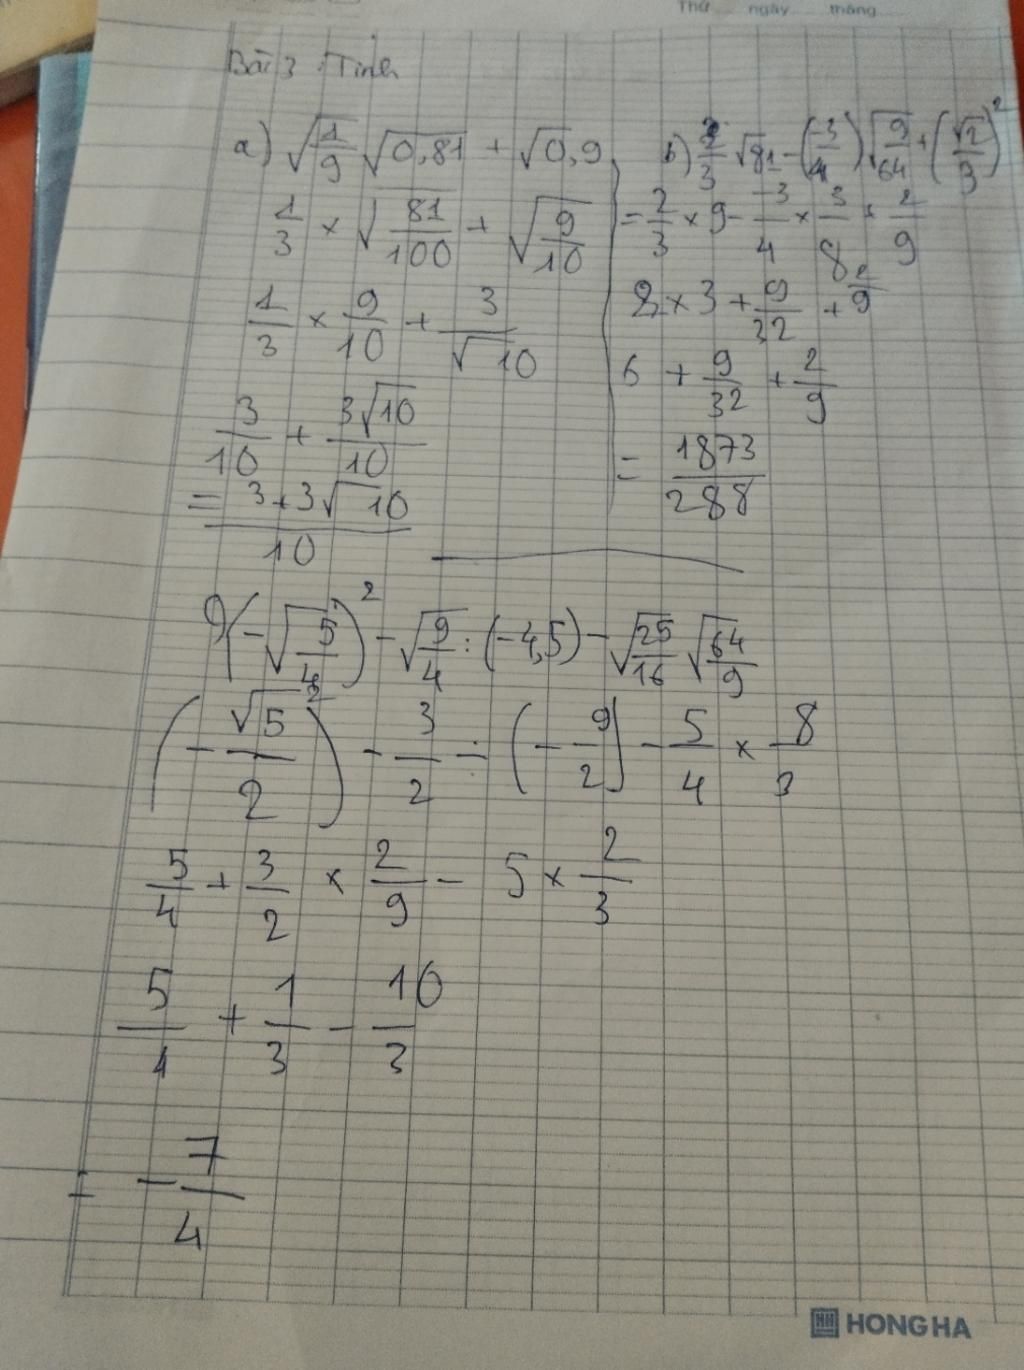 Thứ ngày tháng
Bài 3 : Tính
a) √(1/9) √(0,81) + √0,9
1/3 × √(81/100) + √(9/10)
1/3 × 9/10 + 3/√10
3/10 + 3√10/10
= (3+3√10)/10
b) 2/3 √81 - (-3/4) √(9/64) + (√2/3)²
= 2/3 × 9 - -3/4 × 3/8 + 2/9
2 × 3 + 9/32 + 2/9
6 + 9/32 + 2/9
= 1873/288
(-√(5/4))² - √(9/4) : (-4,5) - √(25/16) √(64/9)
(-√5/2)² - 3/2 : (-9/2) - 5/4 × 8/3
5/4 + 3/2 × 2/9 - 5 × 2/3
5/4 + 1/3 - 10/3
= -7/4
HONG HA